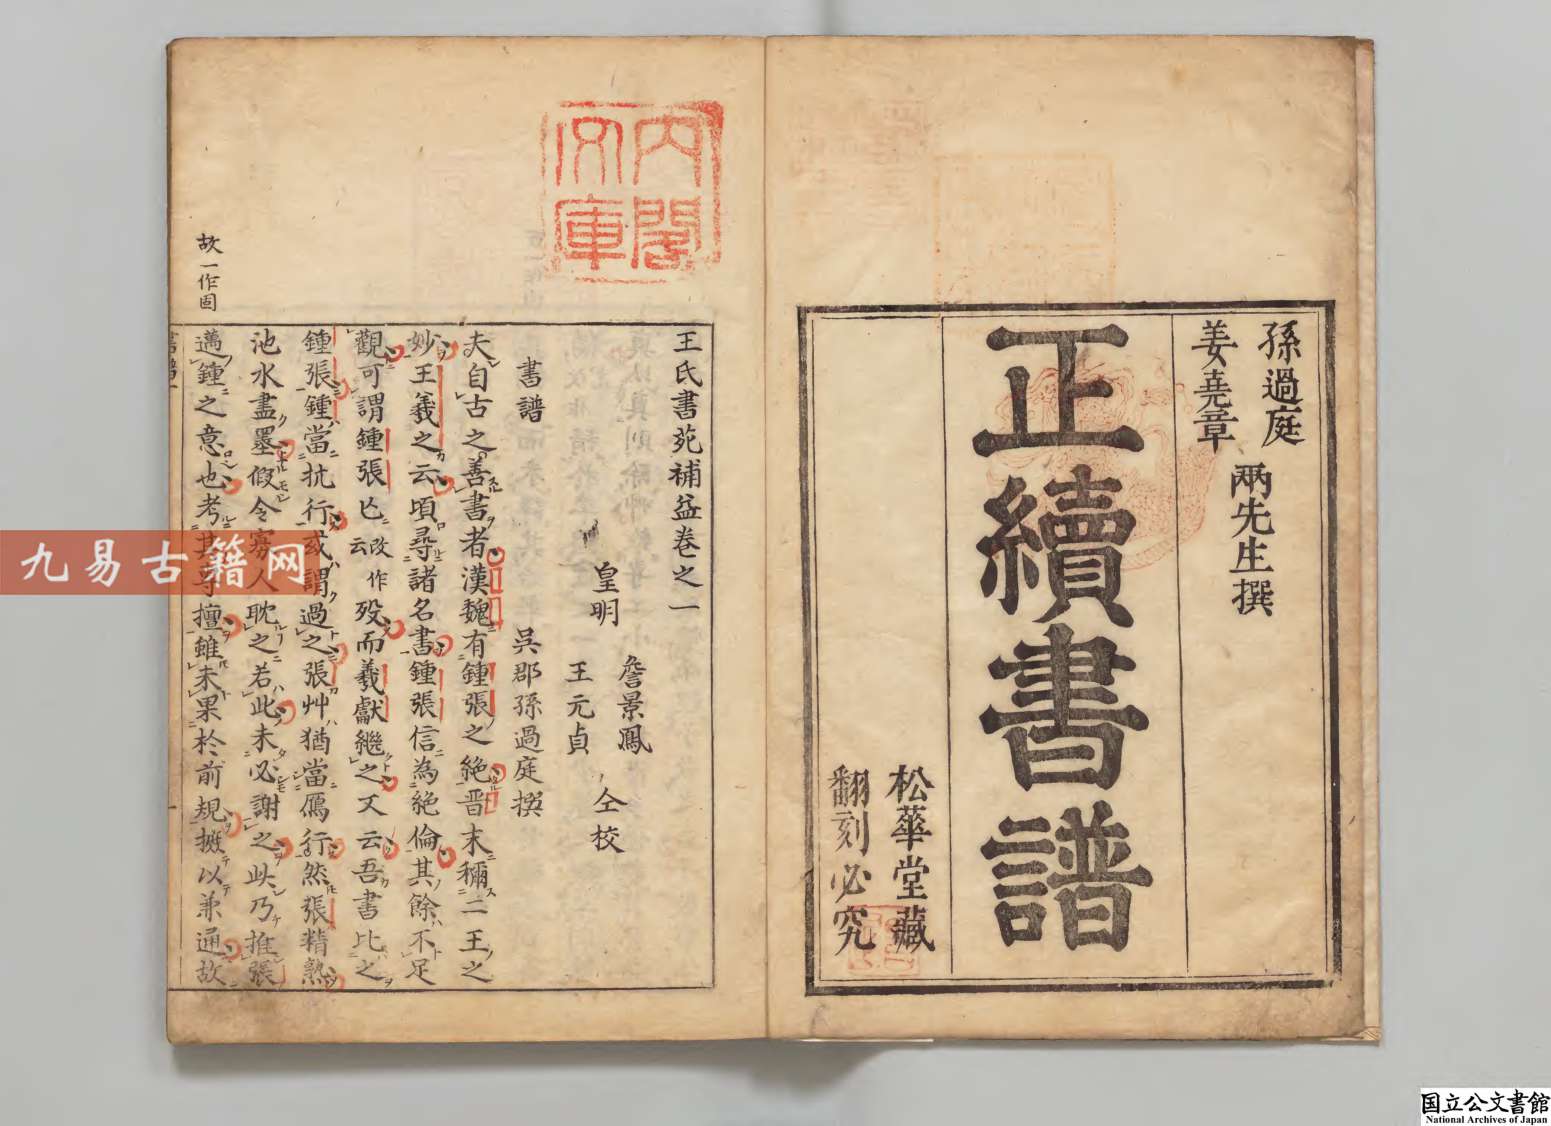 孫過庭
姜堯章
兩先生撰
正續書譜
松華堂藏
翻刻必究
內閣
文庫
王氏書苑補益卷之一
皇明
詹景鳳
王元貞
仝校
書譜
吳郡孫過庭撰
夫自古之善書者漢魏有鍾張之絶晋末稱二王之
妙王羲之云頃尋諸名書鍾張信為絶倫其餘不足
觀可謂鍾張亡改作云殁而羲獻繼之又云吾書比之
鍾張鍾當抗行或謂過之張艸猶當鴈行然張精熟
池水盡墨假令寡人耽之若此未必謝之此乃推張
邁鍾之意也考其專擅雖未果於前規摭以兼通故
故一作固
九易古籍网
国立公文書館
National Archives of Japan